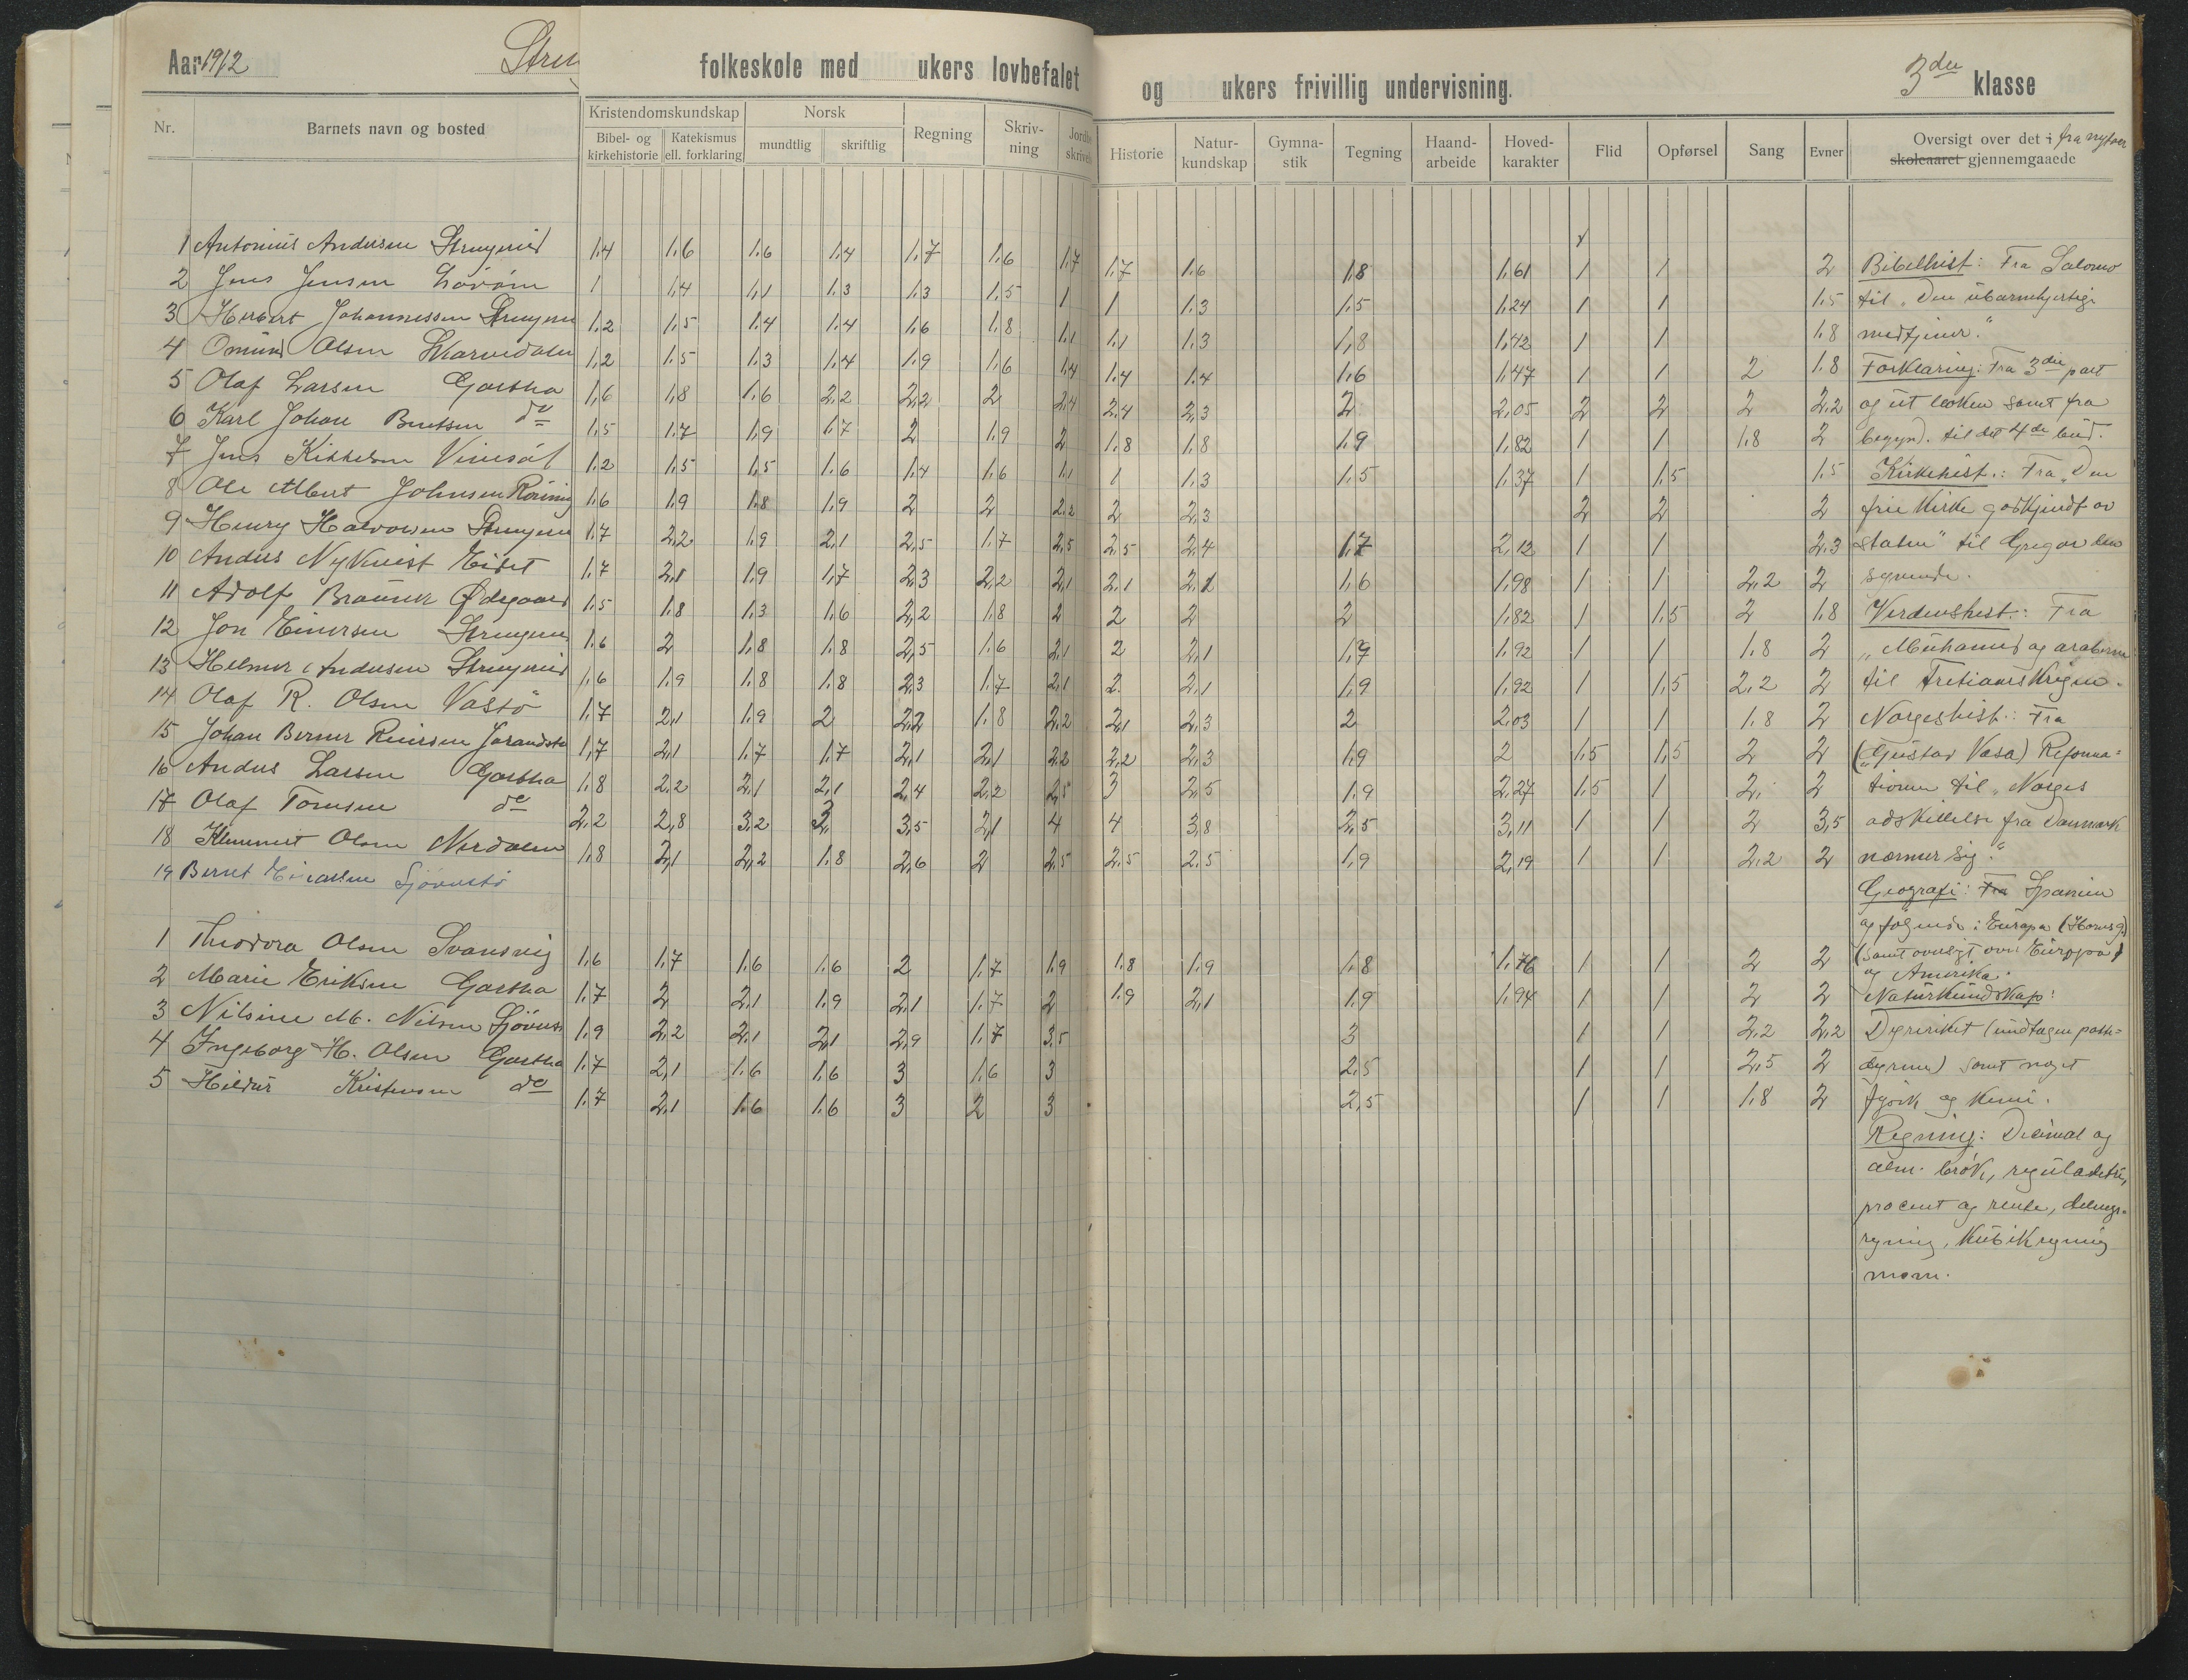 Aar 1912 folkeskole med ukers lovbefalet og ukers frivillig undervisning. 3die klasse
Nr. Barnets navn og bosted Kristendomskundskap Norsk Regning Skriv-ning Historie Natur-kundskap Gymna-stik Tegning Haand-arbeide Hoved-karakter Flid Opførsel Sang Evner Oversigt over det i fra nytaar
Bibel- og kirkehistorie Katekismus ell. forklaring mundtlig skriftlig skoleaaret gjennemgaaede
1 Antonius Andersen 1,4 1,6 1,6 1,4 1,7 1,6 1,7 1,7 1,6 1,8 1,61 1 1 2 Bibelhist: Fra Salomo
2 Jens Jensen 1 1,4 1,1 1,3 1,3 1,5 1 1 1,3 1,5 1,24 1 1 1,5 til "Den ubarmhjertige
3 Herbert Johannessen 1,2 1,5 1,4 1,4 1,6 1,8 1,1 1,1 1,3 1,8 1,42 1 1 1,8 medtjener."
4 Omund Olsen 1,2 1,5 1,3 1,4 1,9 1,6 1,4 1,4 1,4 1,6 1,47 1 1 2 1,8 Forklaring: Fra 3die part
5 Olaf Larsen Gartha 1,6 1,8 1,6 2,2 2,2 2 2,4 2,4 2,3 2 2,05 2 2 2 2,2 og ut boken samt fra
6 Karl Johan Berntsen do 1,5 1,7 1,9 1,7 2 1,9 2 1,8 1,8 1,9 1,82 1 1 1,8 2 begynd. til det 4de bud.
7 Jens Kittelsen 1,2 1,5 1,5 1,6 1,4 1,6 1,1 1 1,3 1,5 1,37 1 1,5 1,5 Kirkehist.: Fra "Den
8 Ole Albert Johnsen 1,6 1,9 1,8 1,9 2 2 2,2 2 2,3 2 2 2 frie kirke godkjendt av
9 Henry Halvorsen 1,7 2,2 1,9 2,1 2,5 1,7 2,5 2,5 2,4 1,7 2,12 1 1 2,3 staten" til Gregor den
10 Anders Nykvist Eidet 1,7 2,1 1,9 1,7 2,3 2,2 2,1 2,1 2,1 1,6 1,98 1 1 2,2 2 syvende.
11 Adolf Ødegaard 1,5 1,8 1,3 1,6 2,2 1,8 2 2 2 2 1,82 1 1,5 2 1,8 Verdenshist.: Fra
12 Jon Einersen 1,6 2 1,8 1,8 2,5 1,6 2,1 2 2,1 1,7 1,92 1 1 1,8 2 "Muhamed og araberne
13 Helmer Andersen 1,6 1,9 1,8 1,8 2,3 1,7 2,1 2 2,1 1,9 1,92 1 1,5 2,2 2 til Tretiaarskrigen.
14 Olaf R. Olsen Vastö 1,7 2,1 1,9 2 2,2 1,8 2,2 2,1 2,3 2 2,03 1 1 1,8 2 Norgeshist.: Fra
15 Johan Berner Reiersen 1,7 2,1 1,7 1,7 2,1 2,1 2,2 2,2 2,3 1,9 2 1,5 1,5 2 2 ("Gustav Vasa) Reforma=
16 Anders Larsen Gartha 1,8 2,2 2,1 2,1 2,4 2,2 2,5 3 2,5 1,9 2,27 1,5 1 2 2 tionen til "Norges
17 Olaf Tomsen do 2,2 2,8 3,2 3 3,5 2,1 4 4 3,8 2,5 3,11 1 1 2 3,5 adskillelse fra Danmark
18 Klemmet Olsen 1,8 2,1 2,2 1,8 2,6 2 2,5 2,5 2,5 1,9 2,19 1 1 2,2 2 nærmer sig."
19 Bernt
Geografi: Fra Spanien
og følgende i Europa (Horns g.)
1 Theodora Olsen Svansvig 1,6 1,7 1,6 1,6 2 1,7 1,9 1,8 1,9 1,8 1,76 1 1 2 2 (samt oversigt over Europa)
og Amerika.
2 Marie Eriksen Gartha 1,7 2 2,1 1,9 2,1 1,7 2 1,9 2,1 1,9 1,94 1 1 2 2 Naturkundskap:
3 Nilsine M. Nilsen 1,9 2,2 2,1 2,1 2,9 1,7 3,5 3 1 1 2,2 2,2 Dyreriket (undtagen
4 Ingeborg H. Olsen Gartha 1,7 2,1 1,6 1,6 3 1,6 3 2,5 1 1 2,5 2 dyrene) samt noget
5 Hildur Kristensen do 1,7 2,1 1,6 1,6 3 2 3 2,5 1 1 1,8 2 fysik og kemi.
Regning: Decimal og
alm. brøk, reguladetri,
procent og rente, delings-
regning, kubikregning
m.m.